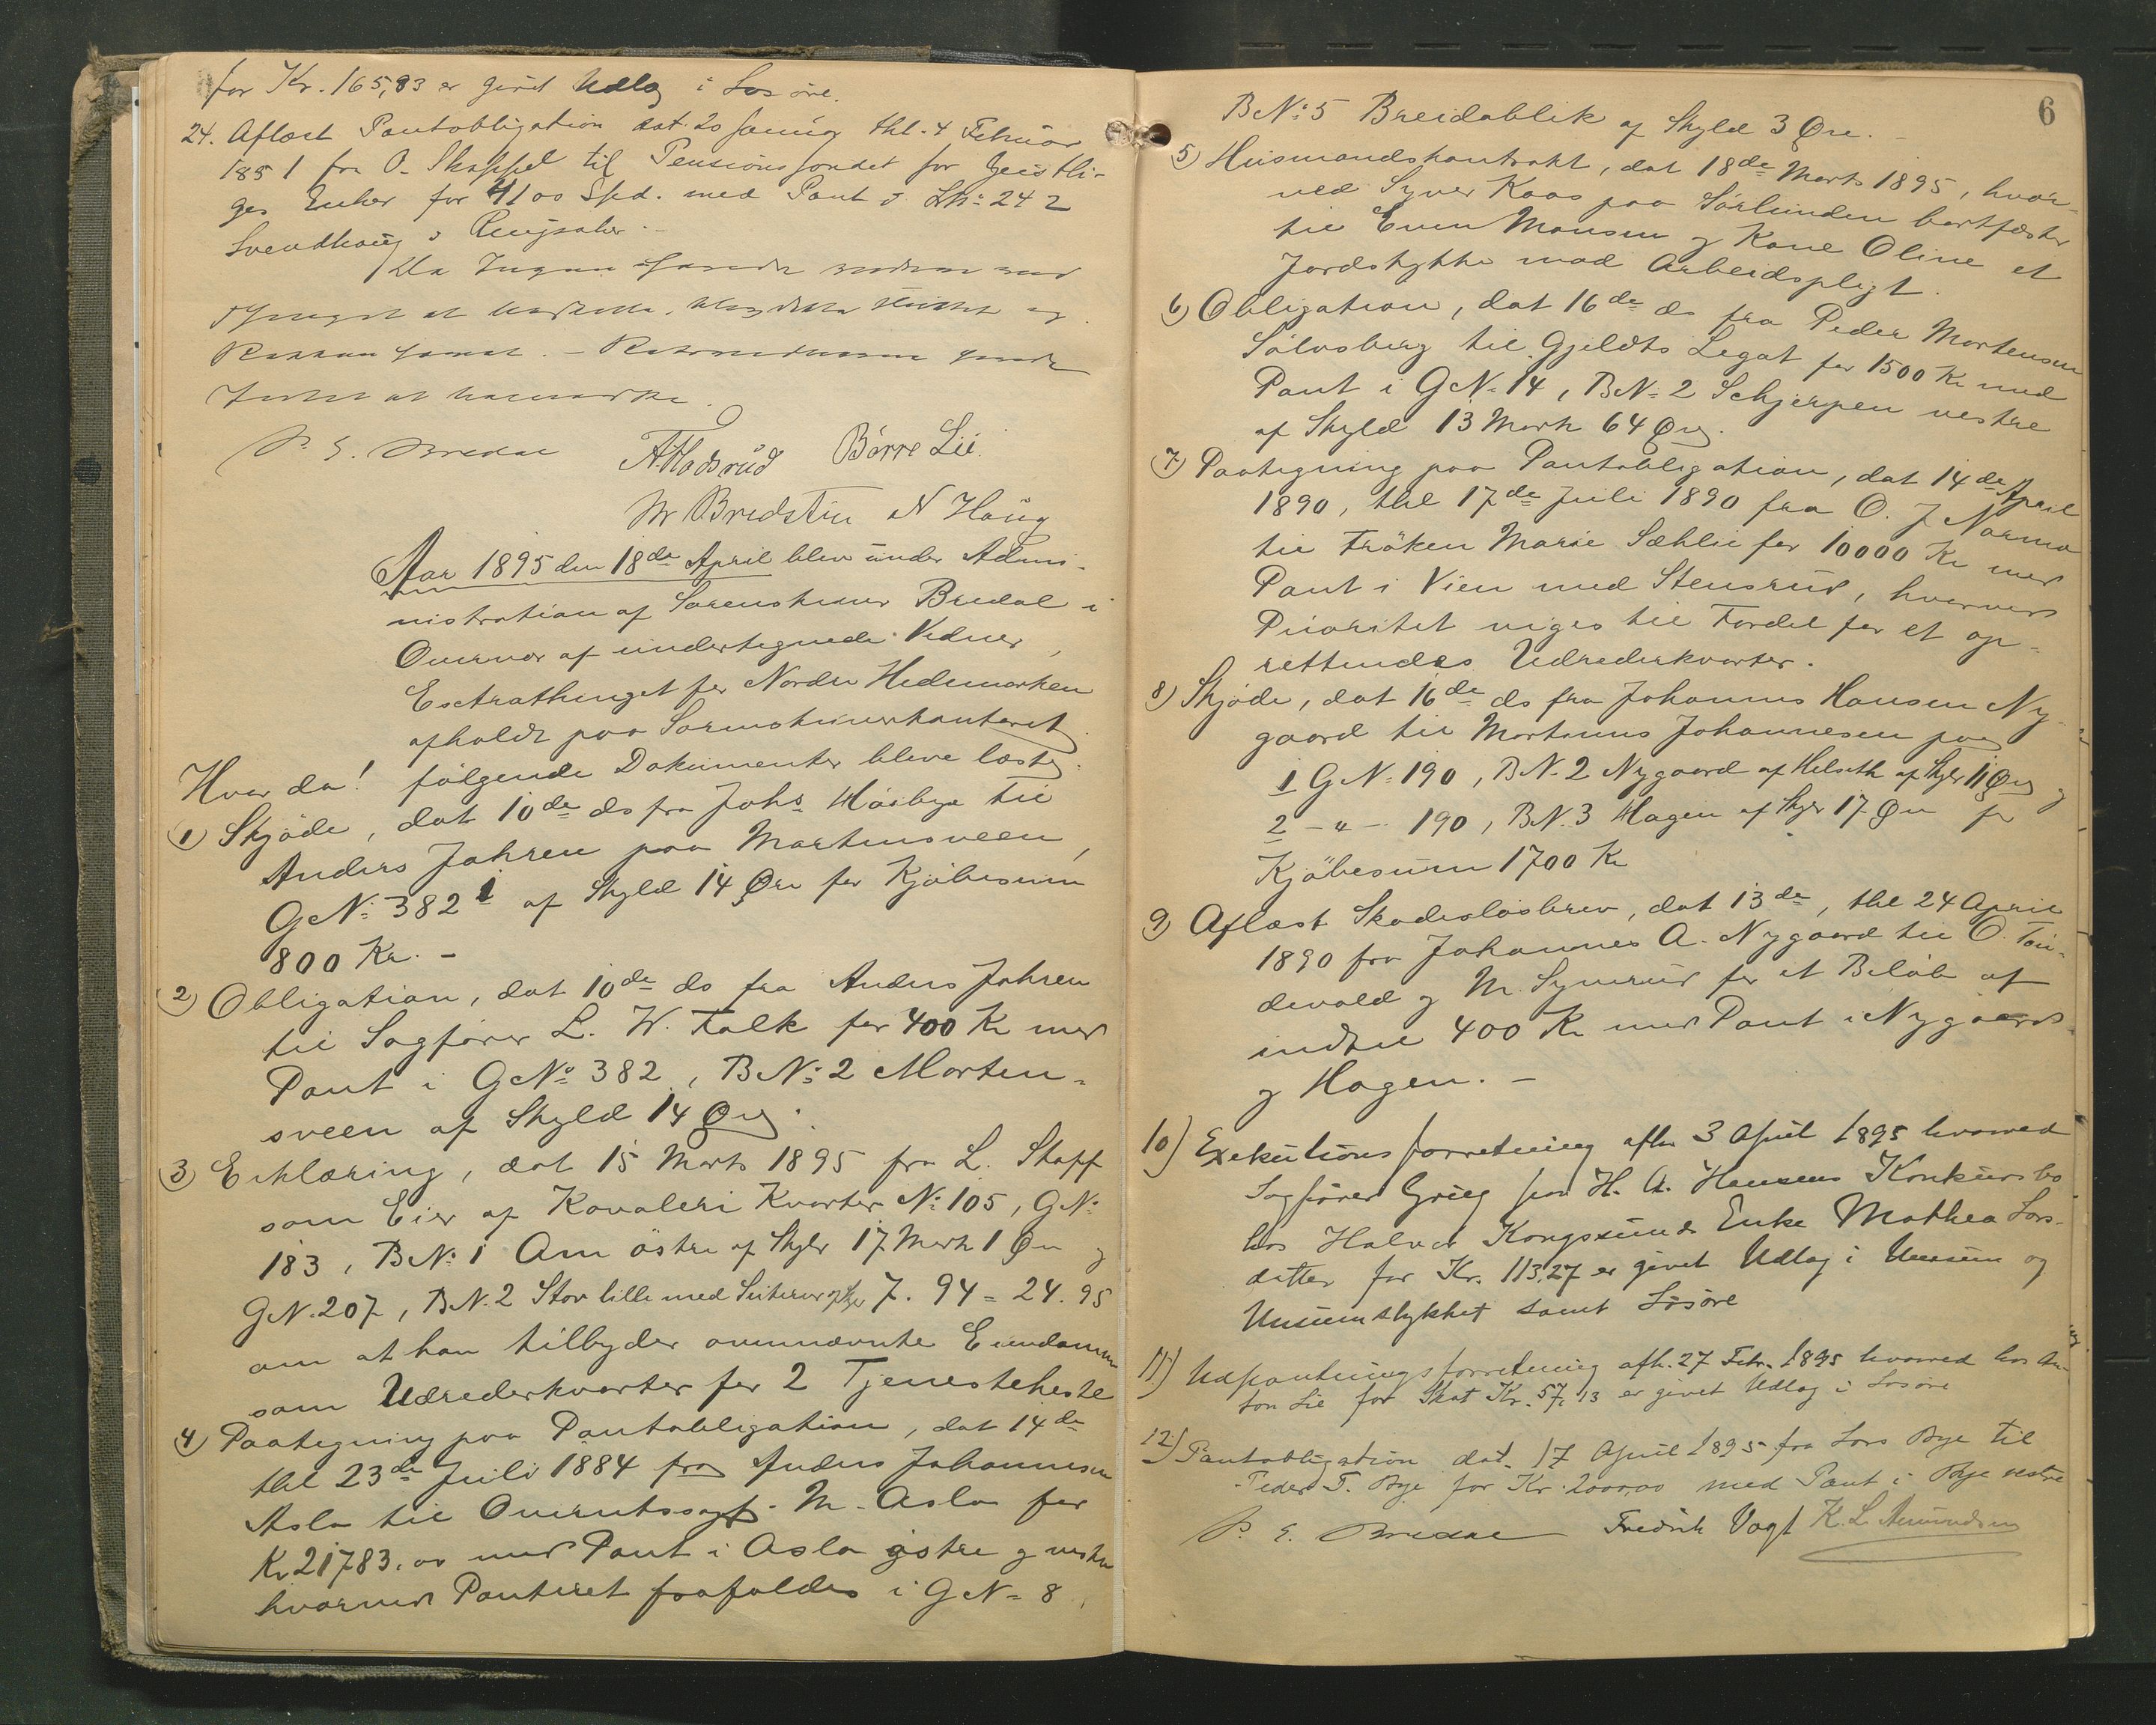 for Kr. 165,83 er givet Udlæg i Løsøre.
24. Aflæst Pantobligation dat. 20 Januar thl. 4 Februar
1851 fra O. Skappel til Pensionsfondet for Geistli-
ges Enker for 4100 Spd. med Pant i LN: 242
Svendhaug i Ringsaker. -
Da Ingen havde videre ved
Thinget at bestille, blev dette sluttet og
Retten hævet. - Retsvidnerne havde
Intet at bemærke.
P. E. Bredal A Hadsrud Börre Lie
M Bredstein N Haug
Aar 1895 den 18de April blev under Admi-
nistration af Sorenskriver Bredal i
Overvær af undertegnede Vidner,
Extrathinget for Nordre Hedemarken
afholdt paa Sorenskriverkontoret.
Hvor da! følgende Dokumenter bleve læste:
1) Skjöde, dat 10de ds fra Johs Häsbye til
Anders Jahren paa Martensveen,
GN: 382 i af Skyld 14 Øre for Kjöbesum
800 Kr. -
2) Obligation, dat 10de ds fra Anders Jahren
til Sagförer L. W. Falk for 400 Kr med
Pant i GNo 382, BNo 2 Morten-
sveen af Skyld 14 Øre.
3) Erklæring, dat 15 Marts 1895 fra L. Staff
som Eier af Kavaleri Kvarter No 105, GN:
183, BN: 1 Am östre af Skyld 17 Mark 1 Øre og
GN. 207, BN. 2 Stor lille med Seterver af Skyld 7. 94 = 24. 95
om at han tilbyder ovennævnte Eiendomme
som Udrederkvarter for 2 Tjenesteheste
4) Paategning paa Pantobligation, dat 14de
thl 23de Juli 1884 fra Anders Johannesen
Asla til Overretssagf. M. Asla for
Kr 21783.00 med Pant i Asla östre og vestre
hvorved Panteret frafaldes i GN= 8,
6
BNo 5 Breidablik af Skyld 3 Øre. -
5) Husmandskontrakt, dat 18de Marts 1895, hvor-
ved Syver Kaas paa Sørlunden bortfæster
til Even Monsen og Kone Oline et
Jordstykke mod Arbeidspligt.
6) Obligation, dat 16de ds fra Peder Mortensen
Sölvsberg til Gjeldts Legat for 1500 Kr med
Pant i GN= 14, BN= 2 Schjerpen vestre
af Skyld 13 Mark 64 Øre.
7) Paategning paa Pantobligation, dat 14de April
1890, thl 17de Juli 1890 fra O. J Narmo
til Fröken Marie Sæhlie for 10000 Kr med
Pant i Vien med Stensrud, hvorved
Prioritet viges til Fordel for et op-
rettendes Udrederkvarter.
8) Skjöde, dat 16de ds fra Johannes Hansen Ny-
gaard til Martinus Johannesen paa
1 GN: 190, BN. 2 Nygaard af Helseth af Skyld 11 Øre og
2 - " - 190, BN. 3 Hagen af Skyld 17 Øre for
Kjöbesum 1700 Kr
9) Aflæst Skadeslösbrev, dat 13de, thl 24 April
1890 fra Johannes A. Nygaard til O. Tan-
devold og M. Symrud for et Belöb af
indtil 400 Kr med Pant i Nygaard
og Hagen. -
10) Exekutionsforretning afh. 3 April 1895 hvorved
Sagfører Grieg for H. A. Hansens Konkursbo
hos Halvor Kongssunds Enke Mathea Lars-
datter for Kr. 113.27 er givet Udlæg i Unsum og
Unsumstykket samt Løsøre
11) Udpantningsforretning afh. 27 Febr. 1895 hvorved hos An-
ton Lie for Skat Kr. 57,13 er givet Udlæg i Løsøre
12) Pantobligation dat. 17 April 1895 fra Lars Bye til
Peder T. Bye for Kr. 2000,00 med Pant i Bye vestre
P. E. Bredal Fredrik Vogt K. L. Amundsen